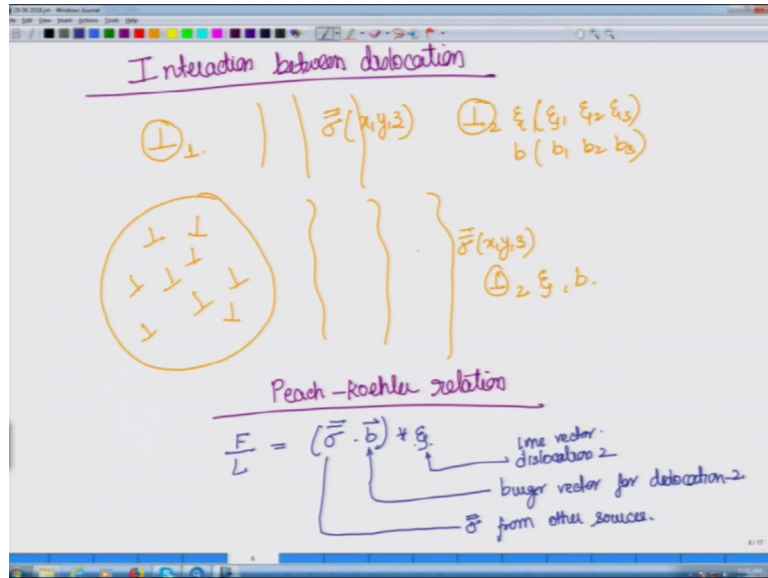 Edit View Insert Actions Tools Help
Interaction between dislocation
⊥ 1. σ̿ (x,y,z) ⊥ 2 ξ (ξ1, ξ2 ξ3)
b ( b1 b2 b3)
σ̿ (x,y,z)
⊥ 2 ξ, b.
Peach-Koehler relation
F/L = (σ̿ . b⃗) * ξ
line vector.
dislocation 2
burger vector for dislocation-2
σ̿ from other sources.